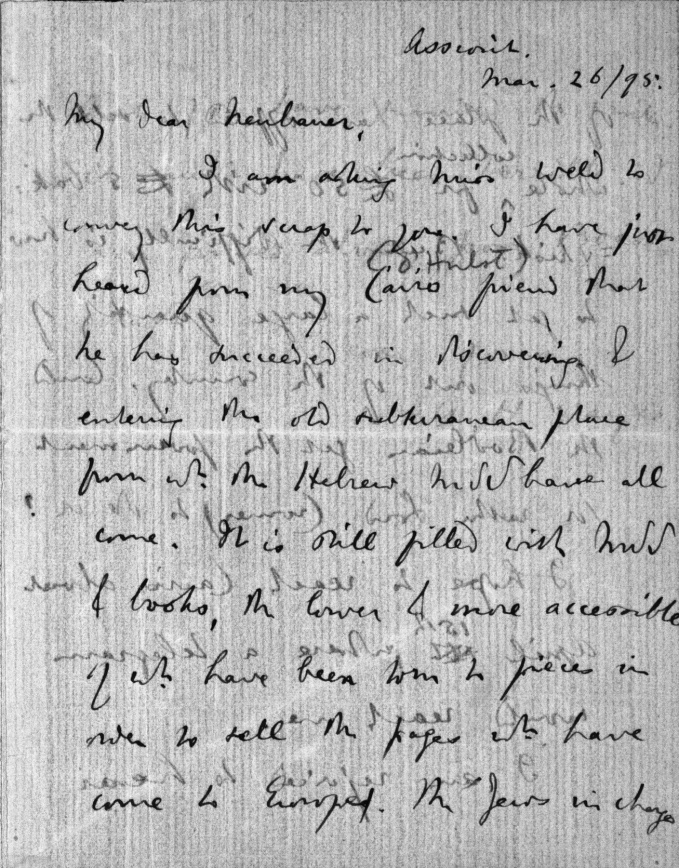 Assiout.
Mar. 26/95.
My dear Neubauer,
I am asking Miss Weld to
convey this scrap to you. I have just
heard from my Cairo friend that
he has succeeded in discovering &
entering the old subterranean place
from wh. the Hebrew MSS have all
come. It is still filled with MSS
& books, the lower & more accessible
of wh. have been torn to pieces in
order to sell the pages wh. have
come to Europe. The Jews in charge